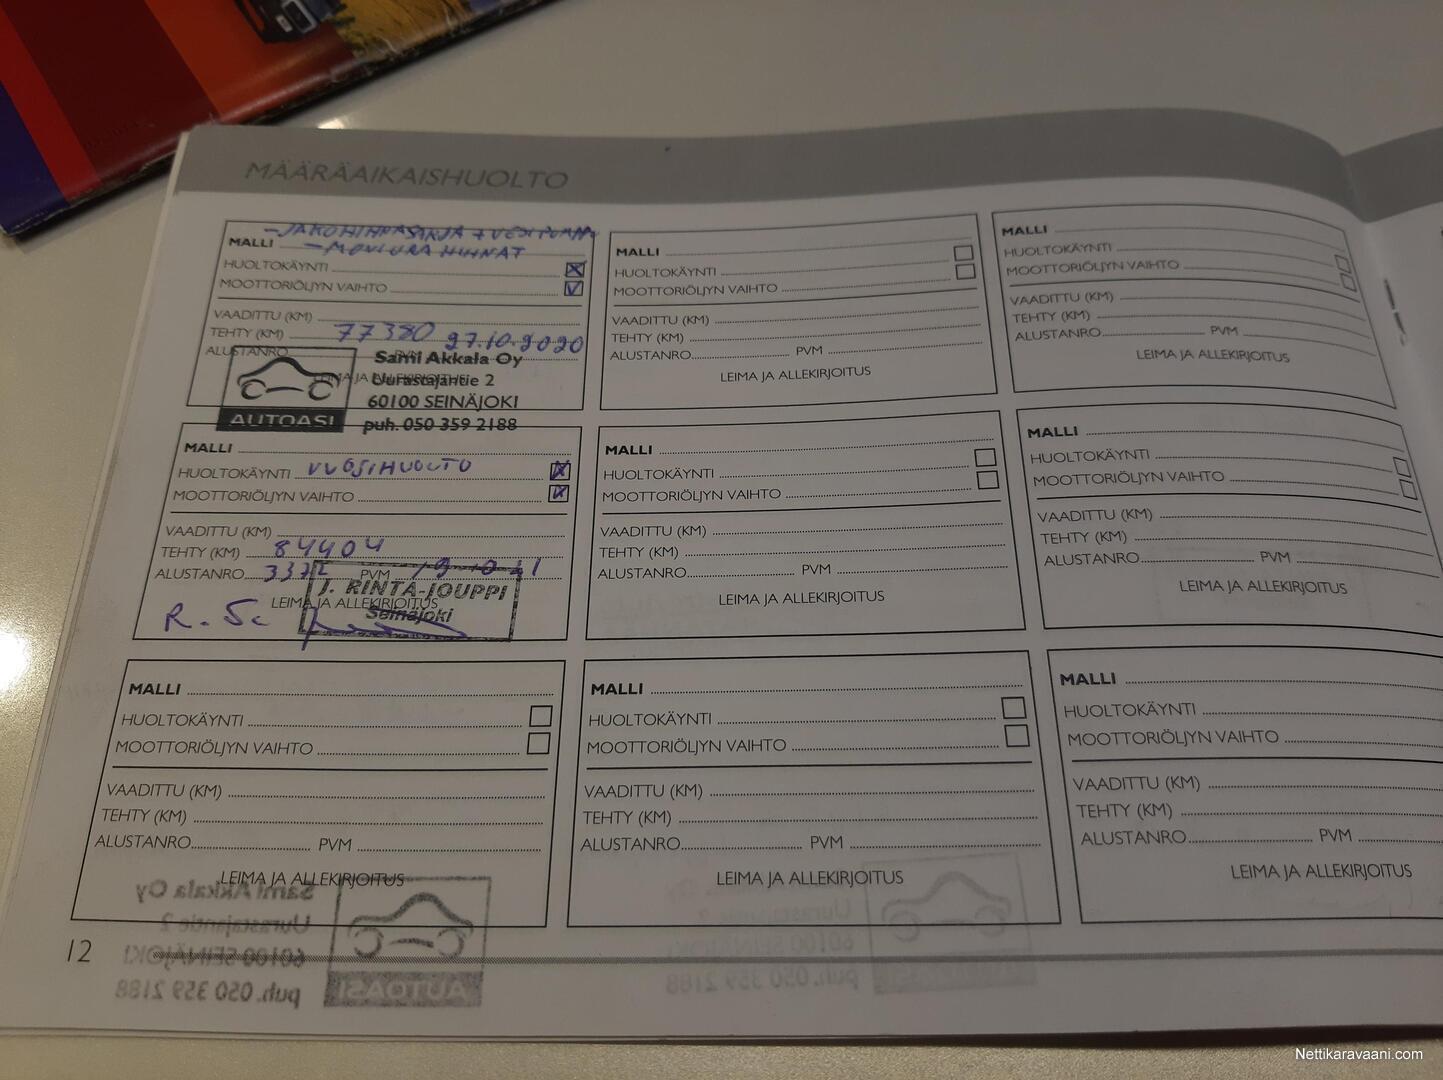 MÄÄRÄAIKAISHUOLTO
- JAKOHIHNASARJA + VESIPUMPPU
MALLI - MONIURA HIHNAT
HUOLTOKÄYNTI
MOOTTORIÖLJYN VAIHTO
VAADITTU (KM)
TEHTY (KM) 77380 27.10.2020
ALUSTANRO PVM
LEIMA JA ALLEKIRJOITUS
AUTOASI
Sami Akkala Oy
Uurastajantie 2
60100 SEINÄJOKI
puh. 050 359 2188
MALLI
HUOLTOKÄYNTI
MOOTTORIÖLJYN VAIHTO
VAADITTU (KM)
TEHTY (KM)
ALUSTANRO PVM
LEIMA JA ALLEKIRJOITUS
MALLI
HUOLTOKÄYNTI
MOOTTORIÖLJYN VAIHTO
VAADITTU (KM)
TEHTY (KM)
ALUSTANRO PVM
LEIMA JA ALLEKIRJOITUS
MALLI
HUOLTOKÄYNTI VUOSIHUOLTO
MOOTTORIÖLJYN VAIHTO
VAADITTU (KM)
TEHTY (KM) 84404
ALUSTANRO PVM
LEIMA JA ALLEKIRJOITUS
J. RINTA-JOUPPI
Seinäjoki
MALLI
HUOLTOKÄYNTI
MOOTTORIÖLJYN VAIHTO
VAADITTU (KM)
TEHTY (KM)
ALUSTANRO PVM
LEIMA JA ALLEKIRJOITUS
MALLI
HUOLTOKÄYNTI
MOOTTORIÖLJYN VAIHTO
VAADITTU (KM)
TEHTY (KM)
ALUSTANRO PVM
LEIMA JA ALLEKIRJOITUS
MALLI
HUOLTOKÄYNTI
MOOTTORIÖLJYN VAIHTO
VAADITTU (KM)
TEHTY (KM)
ALUSTANRO PVM
LEIMA JA ALLEKIRJOITUS
MALLI
HUOLTOKÄYNTI
MOOTTORIÖLJYN VAIHTO
VAADITTU (KM)
TEHTY (KM)
ALUSTANRO PVM
LEIMA JA ALLEKIRJOITUS
MALLI
HUOLTOKÄYNTI
MOOTTORIÖLJYN VAIHTO
VAADITTU (KM)
TEHTY (KM)
ALUSTANRO PVM
LEIMA JA ALLEKIRJOITUS
Sami Akkala Oy
Uurastajantie 2
60100 SEINÄJOKI
puh. 050 359 2188
AUTOASI
12
Nettikaravaani.com